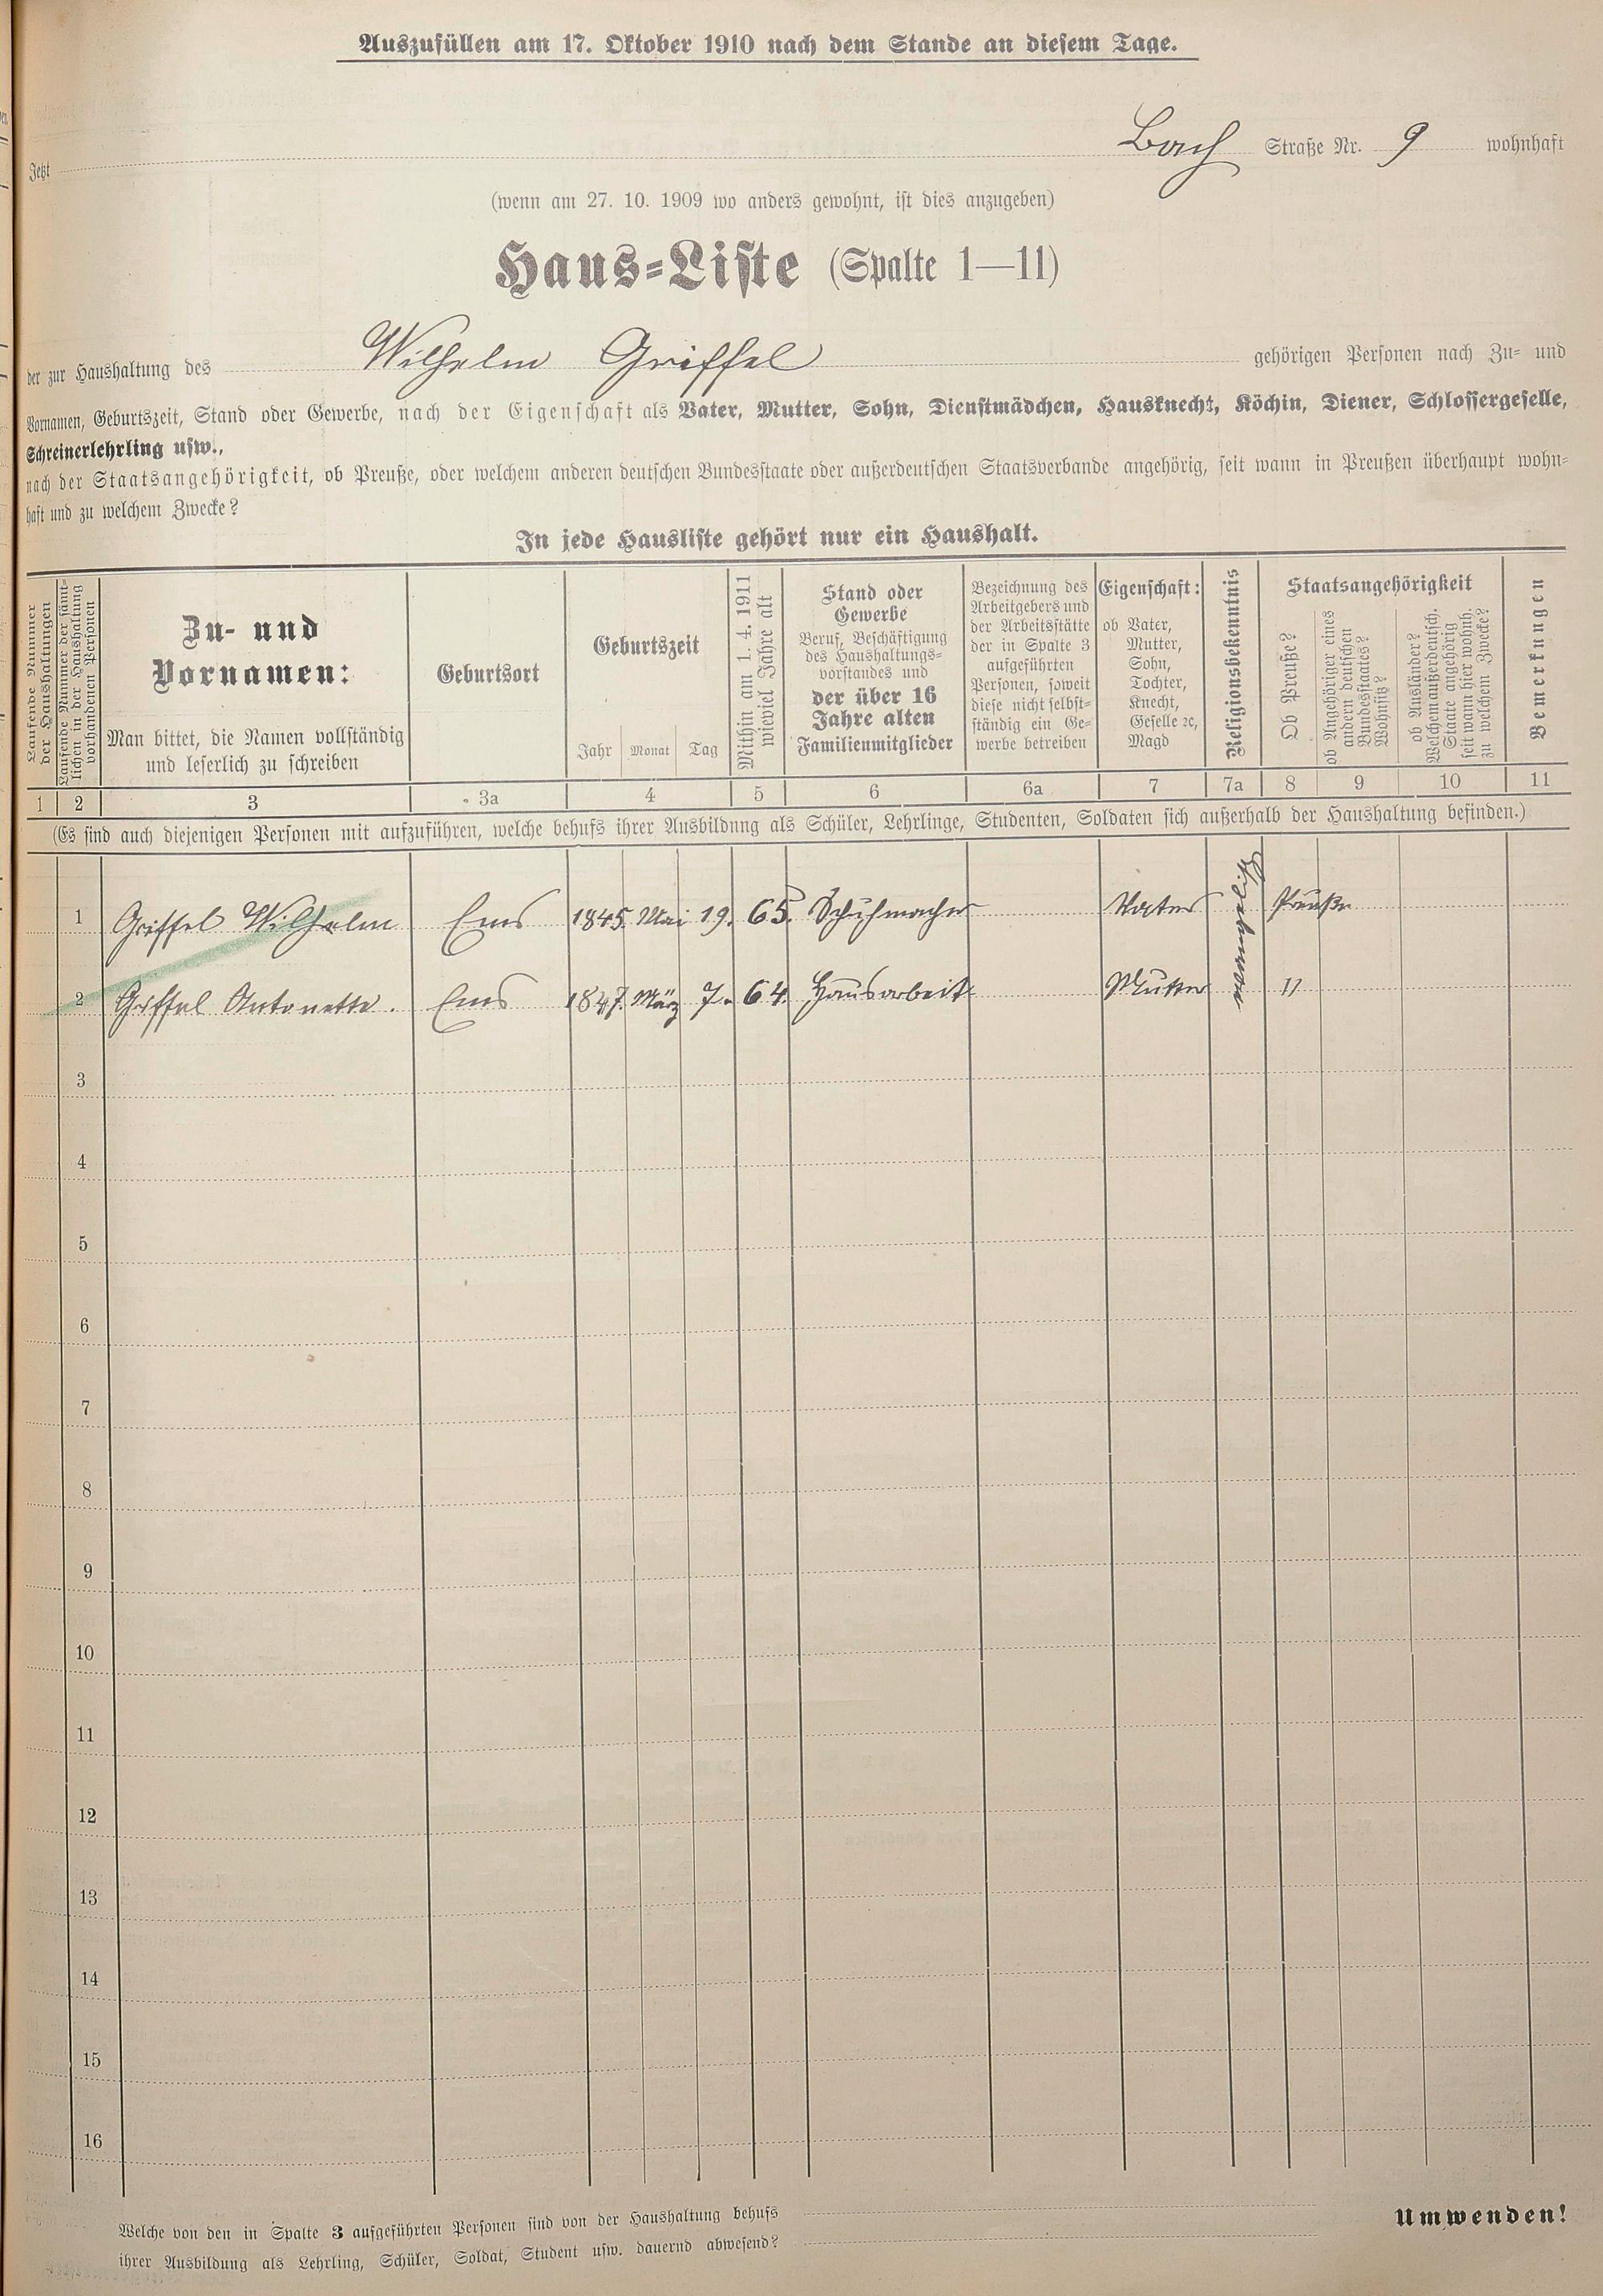 Auszufüllen am 17. Oktober 1910 nach dem Stande an diesem Tage.
Jetzt Bach Straße Nr. 9 wohnhaft
(wenn am 27. 10. 1909 wo anders gewohnt, ist dies anzugeben)
Haus-Liste (Spalte 1—11)
der zur Haushaltung des Wilhelm Griffel gehörigen Personen nach Zu- und
Vornamen, Geburtszeit, Stand oder Gewerbe, nach der Eigenschaft als Vater, Mutter, Sohn, Dienstmädchen, Hausknecht, Köchin, Diener, Schlossergeselle,
Schreinerlehrling usw.,
nach der Staatsangehörigkeit, ob Preuße, oder welchem anderen deutschen Bundesstaate oder außerdeutschen Staatsverbande angehörig, seit wann in Preußen überhaupt wohn-
haft und zu welchem Zwecke?
In jede Hausliste gehört nur ein Haushalt.
Laufende Nummer
der Haushaltungen
Laufende Nummer der sämt-
lichen in der Haushaltung
vorhandenen Personen
Zu- und
Vornamen:
Man bittet, die Namen vollständig
und leserlich zu schreiben
Geburtsort
Geburtszeit
Jahr Monat Tag
Mithin am 1. 4. 1911
wieviel Jahre alt
Stand oder
Gewerbe
Beruf, Beschäftigung
des Haushaltungs-
vorstandes und
der über 16
Jahre alten
Familienmitglieder
Bezeichnung des
Arbeitgebers und
der Arbeitsstätte
der in Spalte 3
aufgeführten
Personen, soweit
diese nicht selbst-
ständig ein Ge-
werbe betreiben
Eigenschaft:
ob Vater,
Mutter,
Sohn,
Tochter,
Knecht,
Geselle ꝛc,
Magd
Religionsbekenntnis
Staatsangehörigkeit
Ob Preuße?
ob Angehöriger eines
andern deutschen
Bundesstaates?
Wohnsitz?
ob Ausländer?
Welchem außerdeutsch.
Staate angehörig
seit wann hier wohnh.
zu welchem Zwecke?
Bemerkungen
1 2 3 3a 4 5 6 6a 7 7a 8 9 10 11
(Es sind auch diejenigen Personen mit aufzuführen, welche behufs ihrer Ausbildung als Schüler, Lehrlinge, Studenten, Soldaten sich außerhalb der Haushaltung befinden.)
1 Griffel Wilhelm Ems 1845. Mai 19. 65. Schuhmacher Vater evangelisch Preuße
2 Griffel Antonette. Ems 1847. März 7. 64. Hausarbeit Mutter "
3
4
5
6
7
8
9
10
11
12
13
14
15
16
Welche von den in Spalte 3 aufgeführten Personen sind von der Haushaltung behufs
ihrer Ausbildung als Lehrling, Schüler, Soldat, Student usw. dauernd abwesend?
Umwenden!